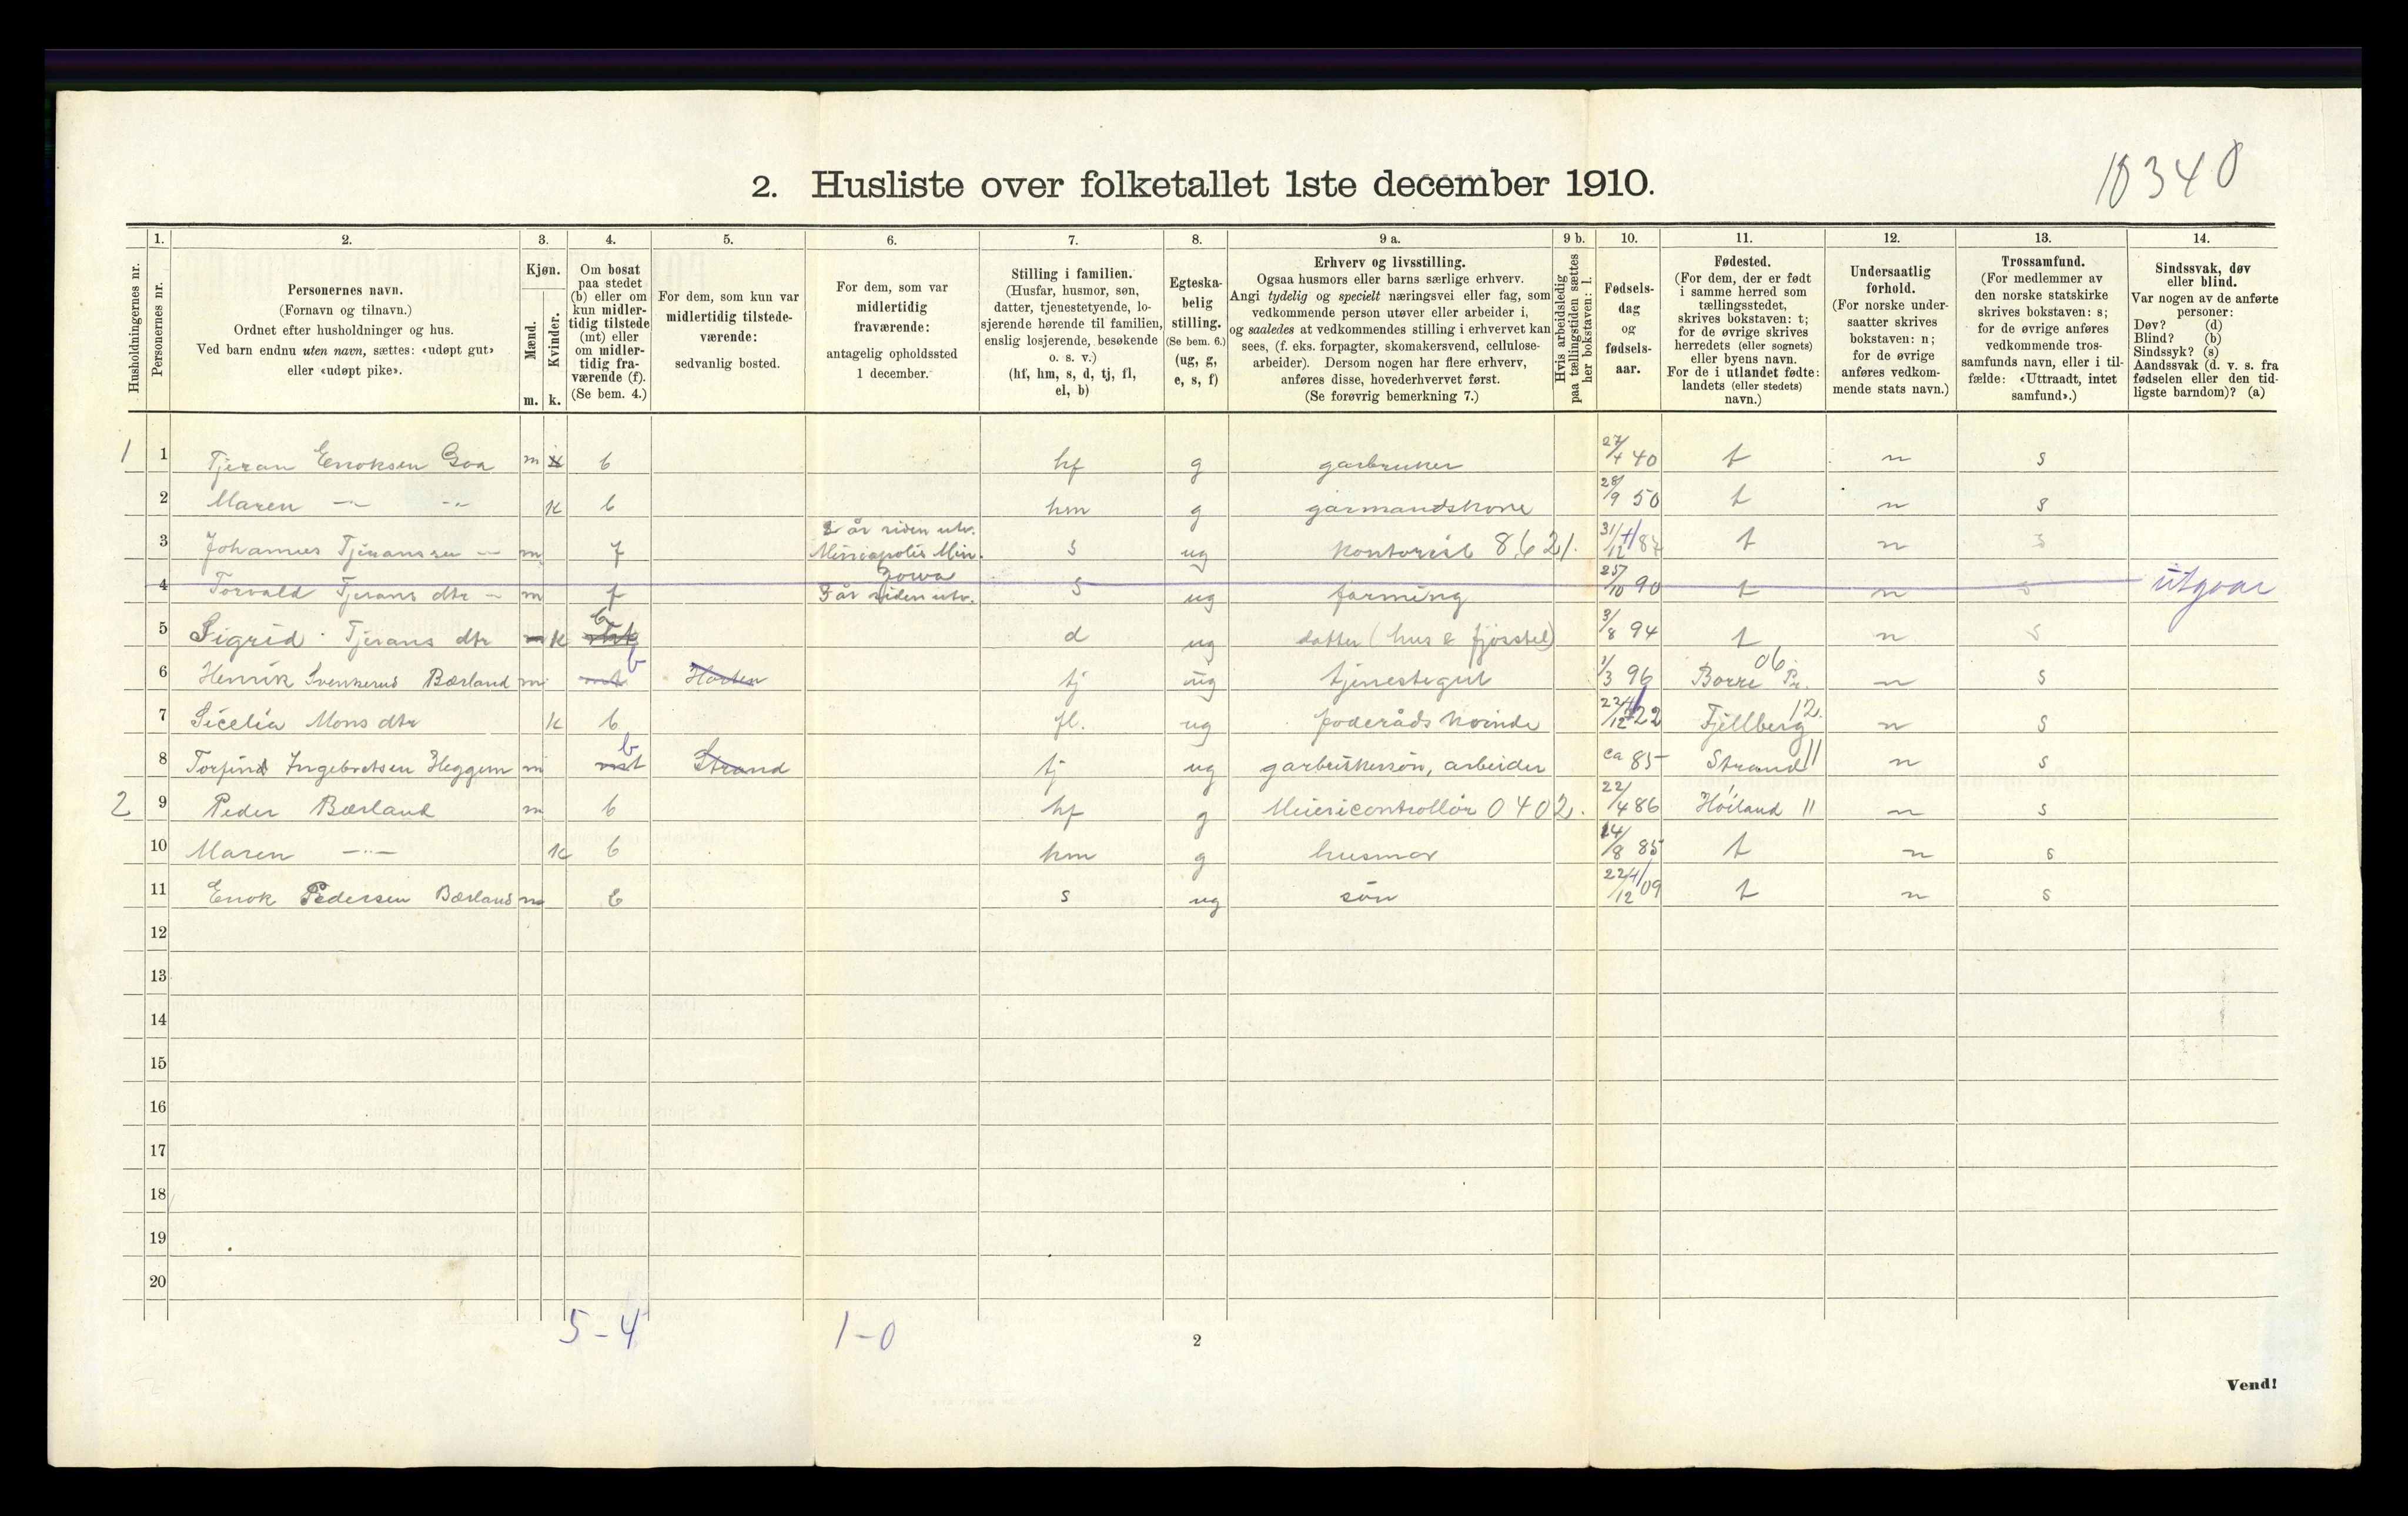 10340
2. Husliste over folketallet 1ste december 1910.
Husholdningernes nr.
1.
Personernes nr.
2.
Personernes navn.
(Fornavn og tilnavn.)
Ordnet efter husholdninger og hus.
Ved barn endnu uten navn, sættes: «udøpt gut»
eller «udøpt pike».
3.
Kjøn.
Mænd.
Kvinder.
m. k.
4.
Om bosat
paa stedet
(b) eller om
kun midler-
tidig tilstede
(mt) eller
om midler-
tidig fra-
værende (f).
(Se bem. 4.)
5.
For dem, som kun var
midlertidig tilstede-
værende:
sedvanlig bosted.
6.
For dem, som var
midlertidig
fraværende:
antagelig opholdssted
1 december.
7.
Stilling i familien.
(Husfar, husmor, søn,
datter, tjenestetyende, lo-
sjerende hørende til familien,
enslig losjerende, besøkende
o. s. v.)
(hf, hm, s, d, tj, fl,
el, b)
8.
Egteska-
belig
stilling.
(Se bem. 6.)
(ug, g,
e, s, f)
9 a.
Erhverv og livsstilling.
Ogsaa husmors eller barns særlige erhverv.
Angi tydelig og specielt næringsvei eller fag, som
vedkommende person utøver eller arbeider i,
og saaledes at vedkommendes stilling i erhvervet kan
sees, (f. eks. forpagter, skomakersvend, cellulose-
arbeider). Dersom nogen har flere erhverv,
anføres disse, hovederhvervet først.
(Se forøvrig bemerkning 7.)
9 b.
Hvis arbeidsledig
paa tællingstiden sættes
her bokstaven: l.
10.
Fødsels-
dag
og
fødsels-
aar.
11.
Fødested.
(For dem, der er født
i samme herred som
tællingsstedet,
skrives bokstaven: t;
for de øvrige skrives
herredets (eller sognets)
eller byens navn.
For de i utlandet fødte:
landets (eller stedets)
navn.)
12.
Undersaatlig
forhold.
(For norske under-
saatter skrives
bokstaven: n;
for de øvrige
anføres vedkom-
mende stats navn.)
13.
Trossamfund.
(For medlemmer av
den norske statskirke
skrives bokstaven: s;
for de øvrige anføres
vedkommende tros-
samfunds navn, eller i til-
fælde: «Uttraadt, intet
samfund».)
14.
Sindssvak, døv
eller blind.
Var nogen av de anførte
personer:
Døv? (d)
Blind? (b)
Sindssyk? (s)
Aandssvak (d. v. s. fra
fødselen eller den tid-
ligste barndom)? (a)
1 1 Tjeran Enoksen Goa m k b hf g garbruker 27/4 40 t n s
2 Maren -"- -"- k b hm g garmandskone 28/9 50 t n s
3 Johannes Tjeranssen - m f 2 år siden utv. Minniapolis Min. s ug kontorist 8621. 31/12 87 t n s
4 Torvald Tjerans dtr - m f Iowa 3 år siden utv. s ug farming 25/10 90 t n s utgaar
5 Sigrid Tjerans dtr m k b d ug datter (hus & fjøsstel) 3/8 94 t n s
6 Henrik Svenkerud Bærland m mt b Horten tj ug tjenestegut 1/3 96 Borre Pr. 06 n s
7 Sicelia Mons dtr k b fl. ug foderåds kvinde 22/12 22 Fjellberg 12. n s
8 Torfind Ingebretsen Heggem m mt b Strand tj ug garbrukersøn, arbeider ca 85 Strand 11 n s
2 9 Peder Bærland m b hf g Meiericontrollør 0402. 22/4 86 Høiland 11 n s
10 Maren -"- k b hm g husmor 14/8 85 t n s
11 Enok Pedersen Bærland m b s ug søn 22/12 09 t n s
12
13
14
15
16
17
18
19
20
5-4 1-0
2
Vend!